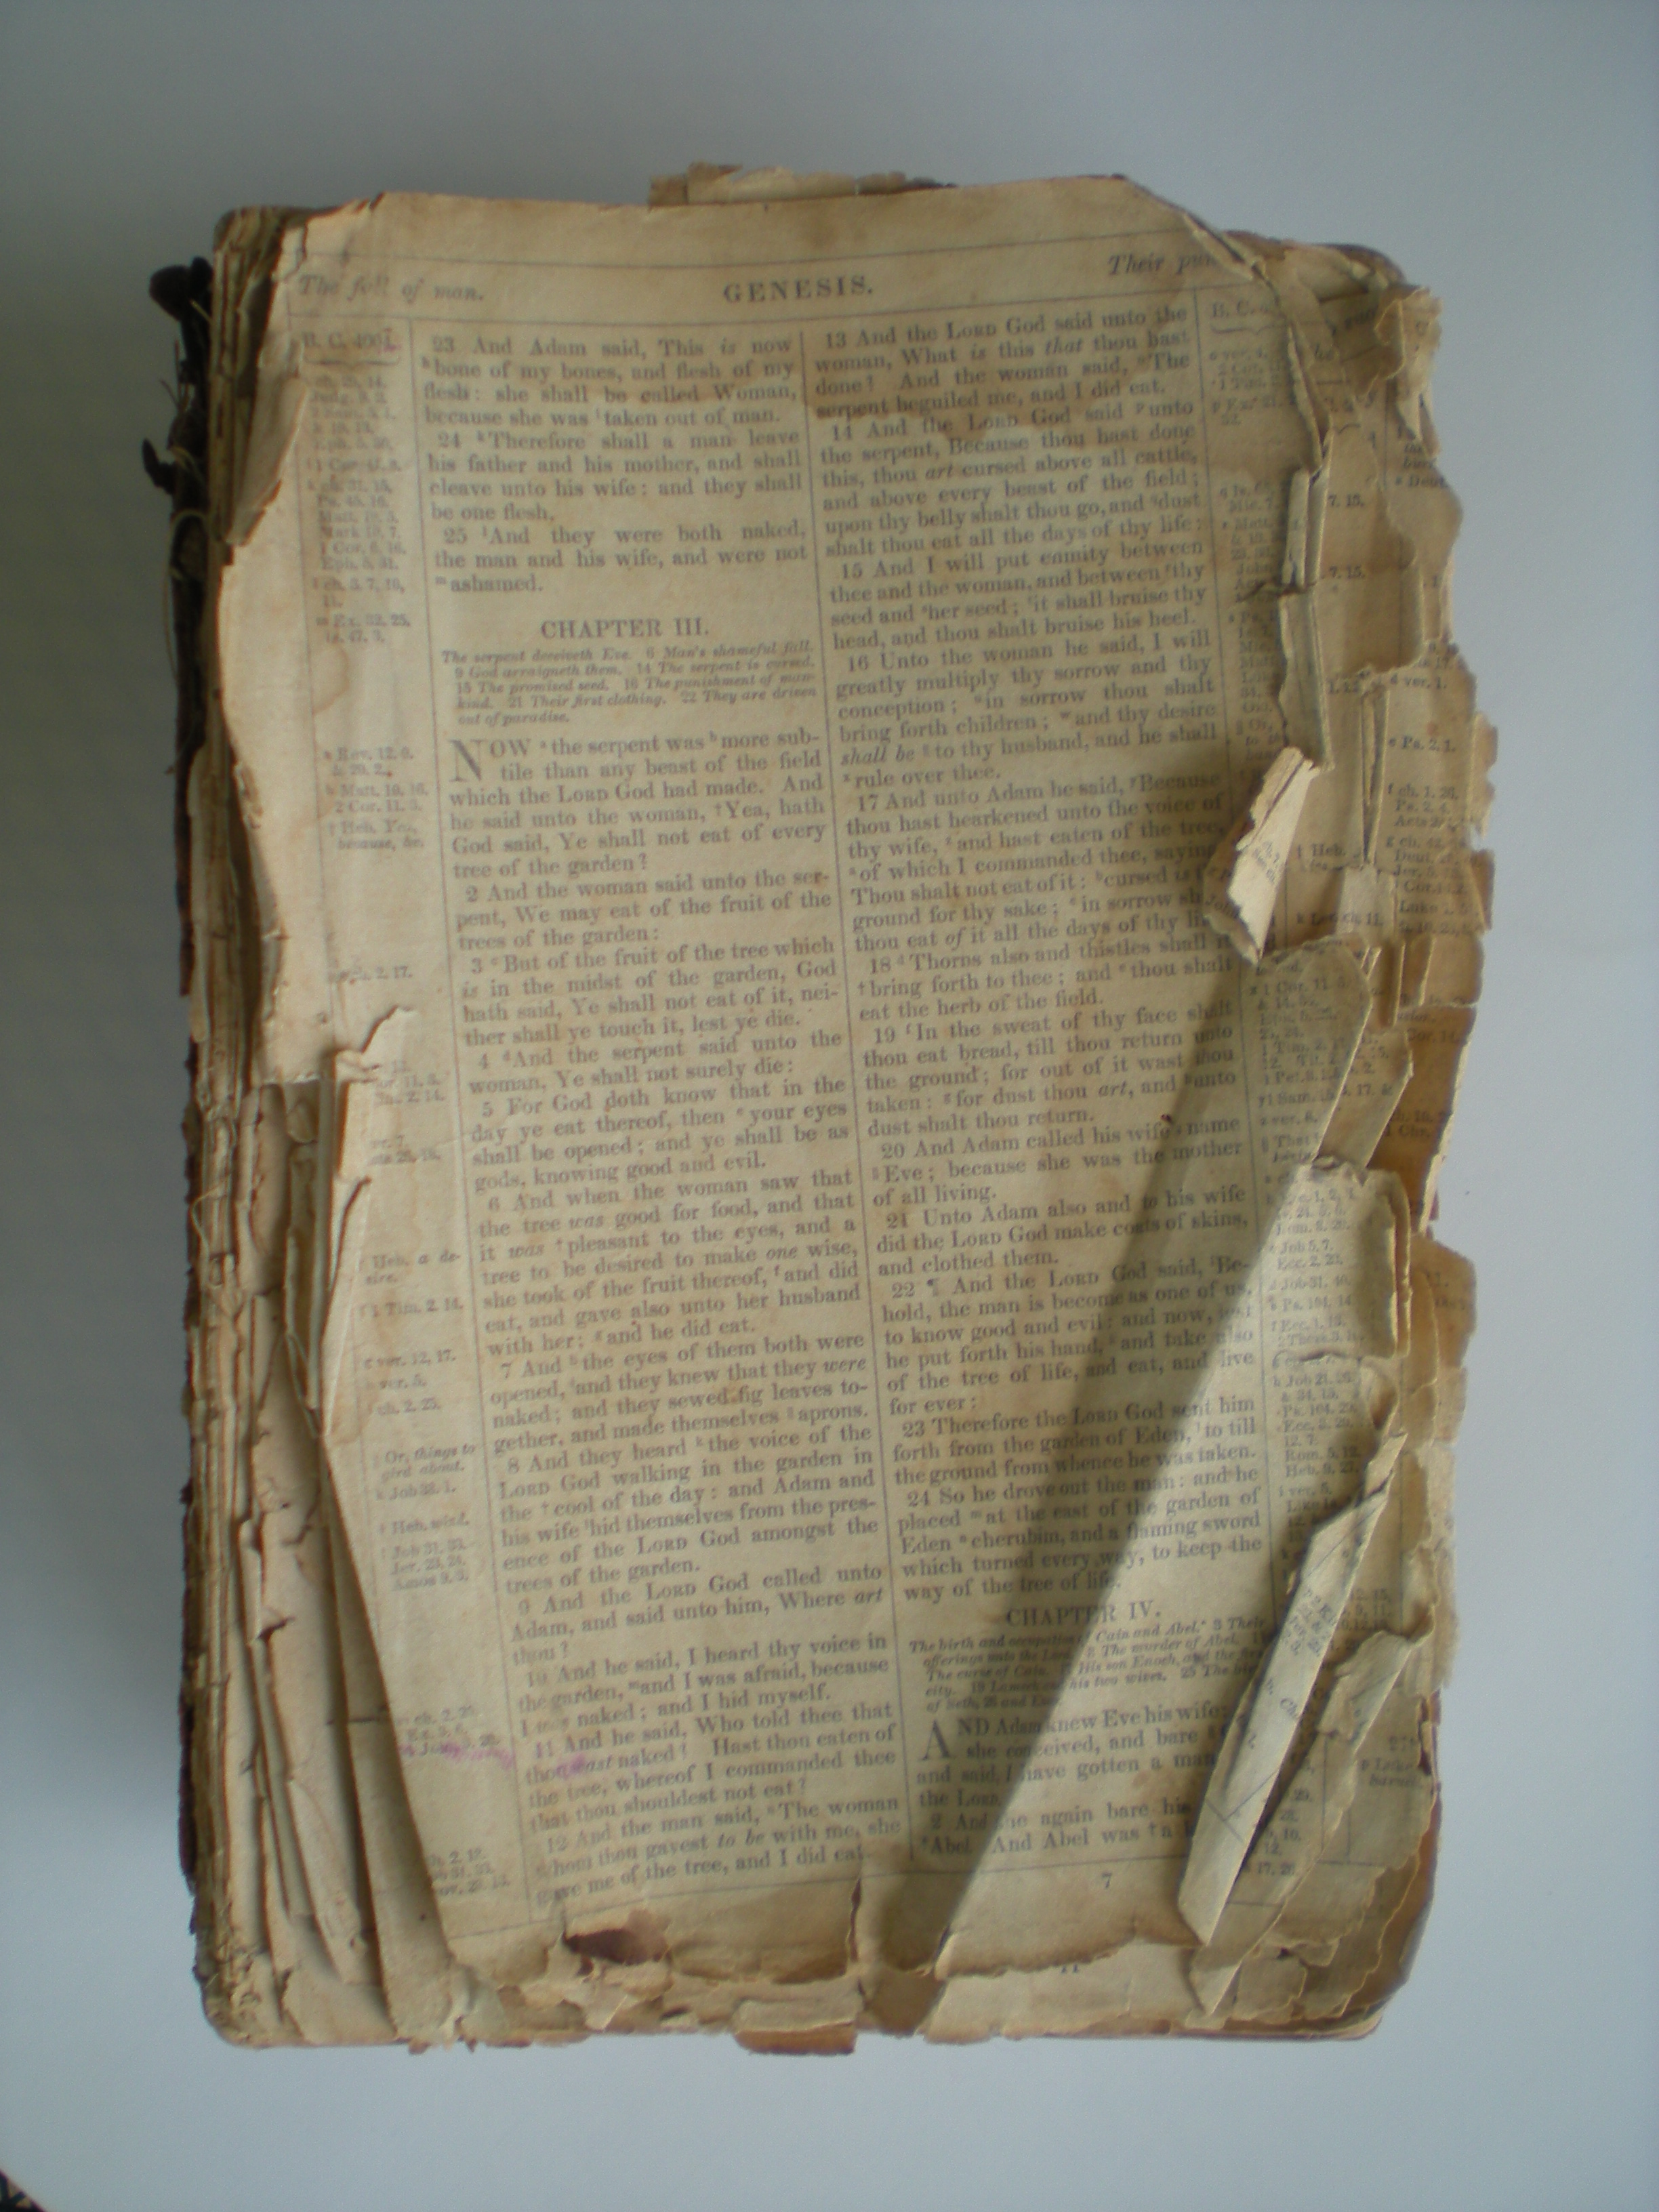 The fall of man.
GENESIS.
Their pun
B. C. 4004.
23 And Adam said, This is now
h bone of my bones, and flesh of my
flesh: she shall be called Woman,
because she was i taken out of man.
24 k Therefore shall a man leave
his father and his mother, and shall
cleave unto his wife: and they shall
be one flesh.
25 l And they were both naked,
the man and his wife, and were not
m ashamed.
CHAPTER III.
The serpent deceiveth Eve. 6 Man's shameful fall.
9 God arraigneth them. 14 The serpent is cursed.
15 The promised seed. 16 The punishment of man-
kind. 21 Their first clothing. 22 They are driven
out of paradise.
NOW a the serpent was b more sub-
tile than any beast of the field
which the LORD God had made. And
he said unto the woman, † Yea, hath
God said, Ye shall not eat of every
tree of the garden?
2 And the woman said unto the ser-
pent, We may eat of the fruit of the
trees of the garden:
3 c But of the fruit of the tree which
is in the midst of the garden, God
hath said, Ye shall not eat of it, nei-
ther shall ye touch it, lest ye die.
4 d And the serpent said unto the
woman, Ye shall not surely die:
5 For God doth know that in the
day ye eat thereof, then e your eyes
shall be opened; and ye shall be as
gods, knowing good and evil.
6 And when the woman saw that
the tree was good for food, and that
it was † pleasant to the eyes, and a
tree to be desired to make one wise,
she took of the fruit thereof, f and did
eat, and gave also unto her husband
with her; g and he did eat.
7 And h the eyes of them both were
opened, i and they knew that they were
naked; and they sewed fig leaves to-
gether, and made themselves || aprons.
8 And they heard k the voice of the
LORD God walking in the garden in
the † cool of the day: and Adam and
his wife l hid themselves from the pres-
ence of the LORD God amongst the
trees of the garden.
9 And the LORD God called unto
Adam, and said unto him, Where art
thou?
10 And he said, I heard thy voice in
the garden, m and I was afraid, because
I was naked; and I hid myself.
11 And he said, Who told thee that
thou wast naked? Hast thou eaten of
the tree, whereof I commanded thee
that thou shouldest not eat?
12 And the man said, n The woman
whom thou gavest to be with me, she
gave me of the tree, and I did eat.
13 And the LORD God said unto the
woman, What is this that thou hast
done? And the woman said, o The
serpent beguiled me, and I did eat.
14 And the LORD God said p unto
the serpent, Because thou hast done
this, thou art cursed above all cattle,
and above every beast of the field;
upon thy belly shalt thou go, and q dust
shalt thou eat all the days of thy life:
15 And I will put enmity between
thee and the woman, and between r thy
seed and s her seed; t it shall bruise thy
head, and thou shalt bruise his heel.
16 Unto the woman he said, I will
greatly multiply thy sorrow and thy
conception; u in sorrow thou shalt
bring forth children; w and thy desire
shall be || to thy husband, and he shall
x rule over thee.
17 And unto Adam he said, y Because
thou hast hearkened unto the voice of
thy wife, z and hast eaten of the tree,
a of which I commanded thee, saying
Thou shalt not eat of it: b cursed is
ground for thy sake; c in sorrow
thou eat of it all the days of thy
18 d Thorns also and thistles shall
† bring forth to thee; and e thou shalt
eat the herb of the field.
19 f In the sweat of thy face shalt
thou eat bread, till thou return unto
the ground; for out of it wast thou
taken: g for dust thou art, and h unto
dust shalt thou return.
20 And Adam called his wife's name
|| Eve; because she was the mother
of all living.
21 Unto Adam also and to his wife
did the LORD God make coats of skins,
and clothed them.
22 ¶ And the LORD God said, i Be-
hold, the man is become as one of us,
to know good and evil: and now, lest
he put forth his hand, k and take also
of the tree of life, and eat, and live
for ever:
23 Therefore the LORD God sent him
forth from the garden of Eden, l to till
the ground from whence he was taken.
24 So he drove out the man: and he
placed m at the east of the garden of
Eden n cherubim, and a flaming sword
which turned every way, to keep the
way of the tree of life.
CHAPTER IV.
The birth and occupation Cain and Abel. 3 Their
offerings unto the 8 The murder of Abel.
The curse of Cain. His son Enoch, and the
city. 19 Lamech his two wives. 25 The
of Seth, 26 and
AND Adam knew Eve his wife;
she conceived, and bare
and said, I have gotten a man
the LORD.
2 And she again bare his
Abel. And Abel was † a
7
Matt. 19. 5.
Mark 10. 7.
1 Cor. 6. 16.
Eph. 5. 31.
l ch. 3. 7, 10,
11.
m Ex. 32. 25.
Is. 47. 3.
a Rev. 12. 9.
& 20. 2.
b Matt. 10. 16.
2 Cor. 11. 3.
† Heb. Yea,
because, &c.
ch. 2. 17.
† Heb. a de-
sire.
f 1 Tim. 2. 14.
g ver. 12, 17.
h ver. 5.
i ch. 2. 25.
|| Or, things to
gird about.
k Job 38. 1.
† Heb. wind.
l Job 31. 33.
Jer. 23. 24.
Amos 9. 3.
B. C.
z ver. 6.
Job 5. 7.
Ecc. 2. 23.
d Job 31. 40.
e Ps. 104. 14.
f Ecc. 1. 13.
h Job 21. 26.
& 34. 15.
Ps. 104. 29.
Ecc. 3. 20.
12. 7.
Rom. 5. 12.
Heb. 9. 27.
i ver. 5.
7. 15.
7. 15.
d ver. 1.
e Ps. 2. 1.
f ch. 1. 26.
Ps. 2. 4.